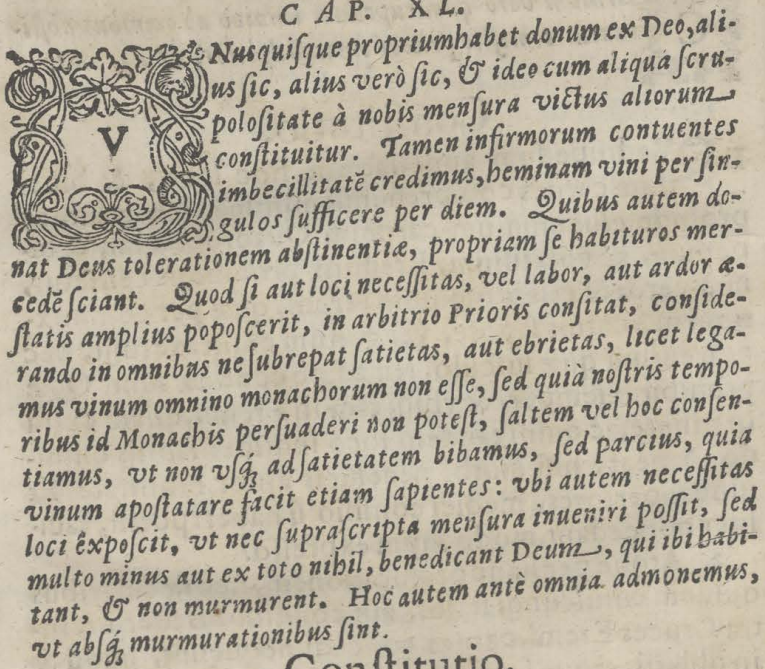 CAP. XL.
VNusquiſque propriumhabet donum ex Deo, ali-
us ſic, alius verò ſic, & ideo cum aliqua ſcru-
poloſitate à nobis menſura victus aliorum
conſtituitur. Tamen infirmorum contuentes
imbecillitatẽ credimus, heminam vini per ſin-
gulos ſufficere per diem. Quibus autem do-
nat Deus tolerationem abſtinentiæ, propriam ſe habituros mer-
cedẽ ſciant. Quod ſi aut loci neceſſitas, vel labor, aut ardor æ-
ſtatis amplius popoſcerit, in arbitrio Prioris conſitat, conſide-
rando in omnibus ne ſubrepat ſatietas, aut ebrietas, licet lega-
mus vinum omnino monachorum non eſſe, ſed quià noſtris tempo-
ribus id Monachis perſuaderi non poteſt, ſaltem vel hoc conſen-
tiamus, vt non vſq́; ad ſatietatem bibamus, ſed parcius, quia
vinum apoſtatare facit etiam ſapientes: vbi autem neceſſitas
loci êxpoſcit, vt nec ſupraſcripta menſura inueniri poſſit, ſed
multo minus aut ex toto nihil, benedicant Deum, qui ibi habi-
tant, & non murmurent. Hoc autem antè omnia admonemus,
vt abſq́; murmurationibus ſint.
Conſtitutio.